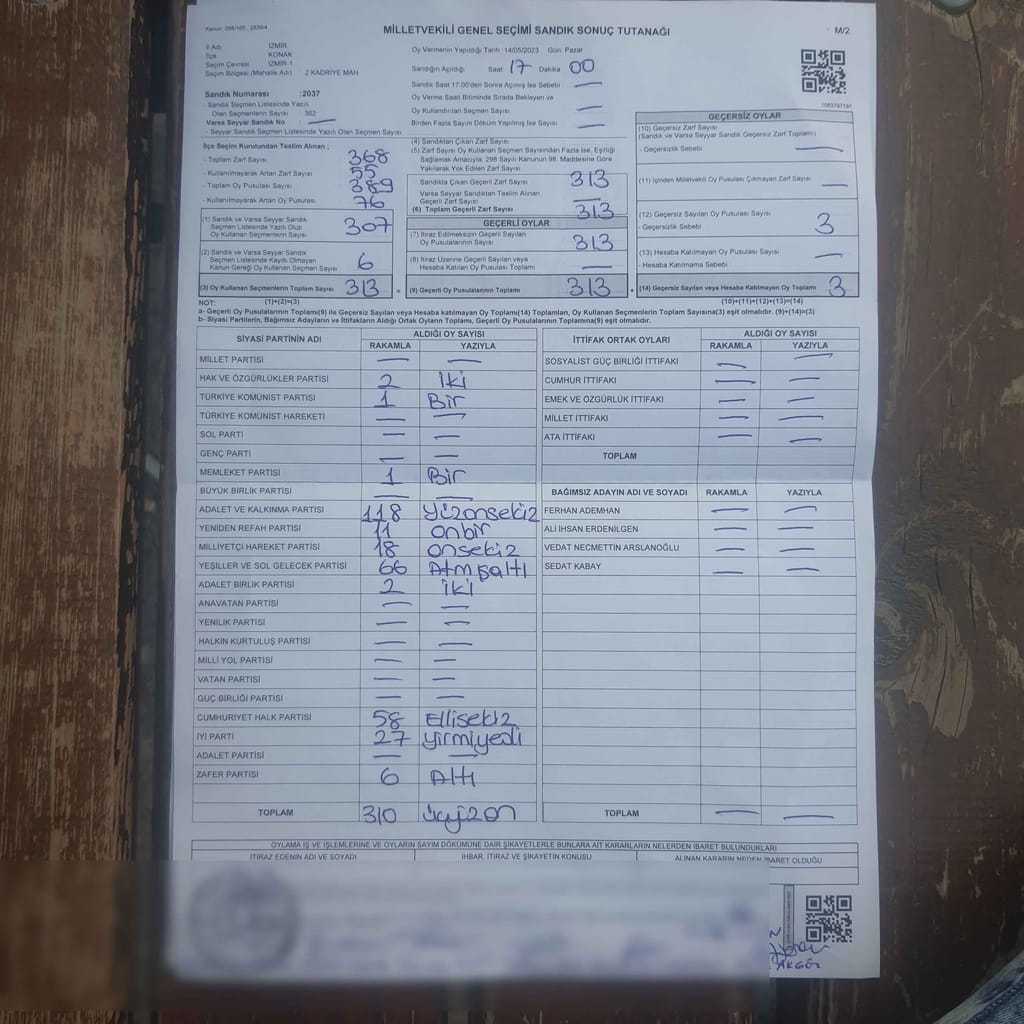 MİLLETVEKİLİ GENEL SEÇİMİ SANDIK SONUÇ TUTANAĞI
M/2
İl Adı İZMİR
İlçe KONAK
Seçim Çevresi İZMİR-1
Seçim Bölgesi (Mahalle Adı) 2.KADRİYE MAH
Oy Vermenin Yapıldığı Tarih :14/05/2023 Gün: Pazar
Sandığın Açıldığı Saat 17 Dakika 00
Sandık Saat 17:00'den Sonra Açılmış İse Sebebi —
Oy Verme Saati Bitiminde Sırada Bekleyen ve
Oy Kullandırılan Seçmen Sayısı —
Birden Fazla Sayım Döküm Yapılmış İse Sayısı —
1063797191
Sandık Numarası :2037
- Sandık Seçmen Listesinde Yazılı
Olan Seçmenlerin Sayısı 362
Varsa Seyyar Sandık No : —
- Seyyar Sandık Seçmen Listesinde Yazılı Olan Seçmen Sayısı:
İlçe Seçim Kurulundan Teslim Alınan ;
- Toplam Zarf Sayısı 368
- Kullanılmayarak Artan Zarf Sayısı 55
- Toplam Oy Pusulası Sayısı 389
- Kullanılmayarak Artan Oy Pusulası 76
(1) Sandık ve Varsa Seyyar Sandık
Seçmen Listesinde Yazılı Olup
Oy Kullanan Seçmenlerin Sayısı 307
(2) Sandık ve Varsa Seyyar Sandık
Seçmen Listesinde Kayıtlı Olmayan
Kanun Gereği Oy Kullanan Seçmen Sayısı 6
(3) Oy Kullanan Seçmenlerin Toplam Sayısı 313 =
(4) Sandıktan Çıkan Zarf Sayısı
(5) Zarf Sayısı Oy Kullanan Seçmen Sayısından Fazla İse, Eşitliği
Sağlamak Amacıyla; 298 Sayılı Kanunun 98. Maddesine Göre
Yakılarak Yok Edilen Zarf Sayısı
Sandıkta Çıkan Geçerli Zarf Sayısı 313
Varsa Seyyar Sandıktan Teslim Alınan
Geçerli Zarf Sayısı —
(6) Toplam Geçerli Zarf Sayısı 313
GEÇERLİ OYLAR
(7) İtiraz Edilmeksizin Geçerli Sayılan
Oy Pusulalarının Sayısı 313
(8) İtiraz Üzerine Geçerli Sayılan veya
Hesaba Katılan Oy Pusulası Toplamı —
(9) Geçerli Oy Pusulalarının Toplamı 313 +
GEÇERSİZ OYLAR
(10) Geçersiz Zarf Sayısı
(Sandık ve Varsa Seyyar Sandık Geçersiz Zarf Toplamı)
- Geçersizlik Sebebi —
(11) İçinden Milletvekili Oy Pusulası Çıkmayan Zarf Sayısı —
(12) Geçersiz Sayılan Oy Pusulası Sayısı
- Geçersizlik Sebebi : 3
(13) Hesaba Katılmayan Oy Pusulası Sayısı —
- Hesaba Katılmama Sebebi :
(14) Geçersiz Sayılan veya Hesaba Katılmayan Oy Toplamı 3
NOT: (1)+(2)=(3) (10)+(11)+(12)+(13)=(14)
a- Geçerli Oy Pusulalarının Toplamı(9) ile Geçersiz Sayılan veya Hesaba katılmayan Oy Toplamı(14) Toplamları, Oy Kullanan Seçmenlerin Toplam Sayısına(3) eşit olmalıdır. (9)+(14)=(3)
b- Siyasi Partilerin, Bağımsız Adayların ve İttifakların Aldığı Ortak Oyların Toplamı, Geçerli Oy Pusulalarının Toplamına(9) eşit olmalıdır.
SİYASİ PARTİNİN ADI ALDIĞI OY SAYISI
RAKAMLA YAZIYLA
MİLLET PARTİSİ — —
HAK VE ÖZGÜRLÜKLER PARTİSİ 2 İki
TÜRKİYE KOMÜNİST PARTİSİ 1 Bir
TÜRKİYE KOMÜNİST HAREKETİ — —
SOL PARTİ — —
GENÇ PARTİ — —
MEMLEKET PARTİSİ 1 Bir
BÜYÜK BİRLİK PARTİSİ — —
ADALET VE KALKINMA PARTİSİ 118 Yüzonsekiz
YENİDEN REFAH PARTİSİ 11 onbir
MİLLİYETÇİ HAREKET PARTİSİ 18 onsekiz
YEŞİLLER VE SOL GELECEK PARTİSİ 66 Atmışaltı
ADALET BİRLİK PARTİSİ 2 iki
ANAVATAN PARTİSİ — —
YENİLİK PARTİSİ — —
HALKIN KURTULUŞ PARTİSİ — —
MİLLİ YOL PARTİSİ — —
VATAN PARTİSİ — —
GÜÇ BİRLİĞİ PARTİSİ — —
CUMHURİYET HALK PARTİSİ 58 Ellisekiz
İYİ PARTİ 27 yirmiyedi
ADALET PARTİSİ — —
ZAFER PARTİSİ 6 Altı
TOPLAM 310 üçyüzon
İTTİFAK ORTAK OYLARI ALDIĞI OY SAYISI
RAKAMLA YAZIYLA
SOSYALİST GÜÇ BİRLİĞİ İTTİFAKI — —
CUMHUR İTTİFAKI — —
EMEK VE ÖZGÜRLÜK İTTİFAKI — —
MİLLET İTTİFAKI — —
ATA İTTİFAKI — —
TOPLAM
BAĞIMSIZ ADAYIN ADI VE SOYADI RAKAMLA YAZIYLA
FERHAN ADEMHAN — —
ALİ İHSAN ERDENİLGEN — —
VEDAT NECMETTİN ARSLANOĞLU — —
SEDAT KABAY — —
TOPLAM — —
OYLAMA İŞ VE İŞLEMLERİNE VE OYLARIN SAYIM DÖKÜMÜNE DAİR ŞİKAYETLERLE BUNLARA AİT KARARLARIN NELERDEN İBARET BULUNDUKLARI
İTİRAZ EDENİN ADI VE SOYADI İHBAR, İTİRAZ VE ŞİKAYETİN KONUSU ALINAN KARARIN NEDEN İBARET OLDUĞU
AKGÖZ